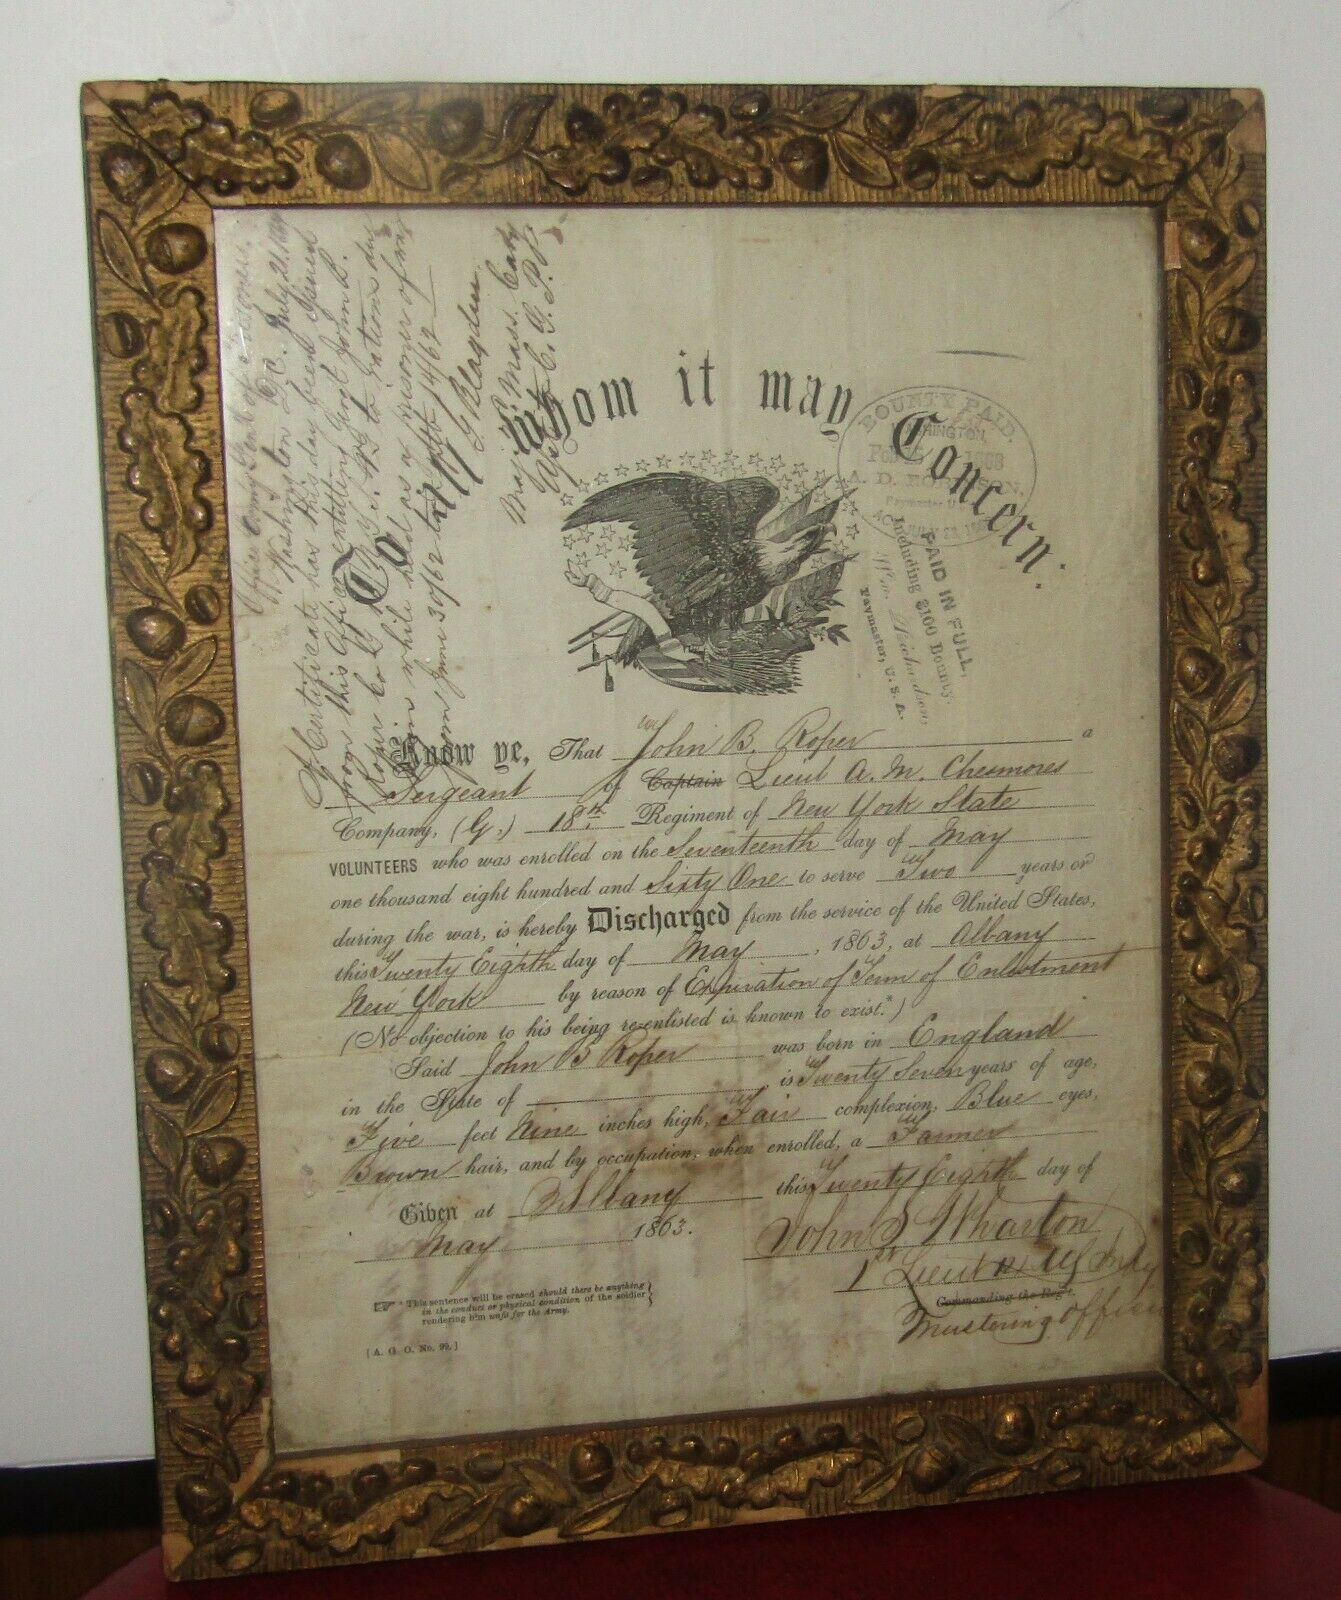 Office Comg Genl of Prisoners,
Washington D.C. July 21.
A Certificate has this day been issued
from this Office entitling Sergt John B.
Roper Co G 18 N.Y. to rations due
him while held as a prisoner of war
from June 30/62 to 14/62
G Blagden
Maj. 2 Mass. Cavy
C. G. P.
To whom it may Concern:
BOUNTY PAID,
WASHINGTON,
Feb 1868
A. D. ROBINSON,
Paymaster
ACT JULY 28, 186
PAID IN FULL,
Including $100 Bounty.
Wm. Richardson
Paymaster, U. S. A.
Know ye, That John B. Roper a
Sergeant of Captain Lieut A. M. Chesmores
Company, (G,) 18th Regiment of New York State
VOLUNTEERS who was enrolled on the Seventeenth day of May
one thousand eight hundred and Sixty One to serve Two years or
during the war, is hereby Discharged from the service of the United States,
this Twenty Eighth day of May, 1863, at Albany
New York by reason of Expiration of Term of Enlistment
(No objection to his being re-enlisted is known to exist.*)
Said John B Roper was born in England
in the State of , is Twenty Seven years of age,
Five feet Nine inches high, Fair complexion, Blue eyes,
Brown hair, and by occupation, when enrolled, a Farmer
Given at Albany this Twenty Eighth day of
May 1863.
John S Wharton
1st Lieut
Commanding the Regt.
Mustering Officer
*This sentence will be erased should there be anything
in the conduct or physical condition of the soldier
rendering him unfit for the Army.
[A. G. O. No. 99.]